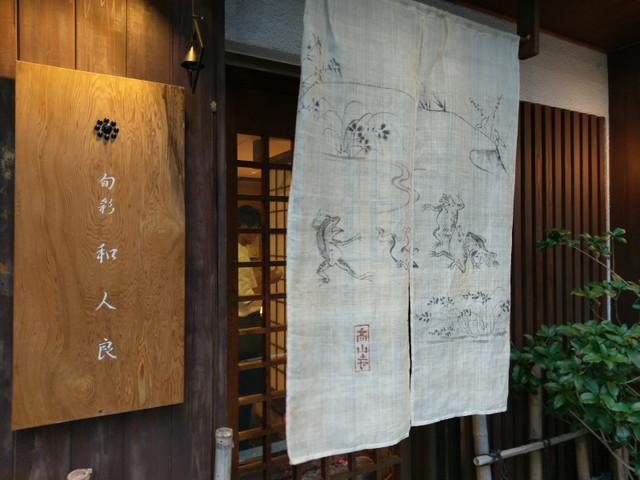 旬彩 和人良
高山寺